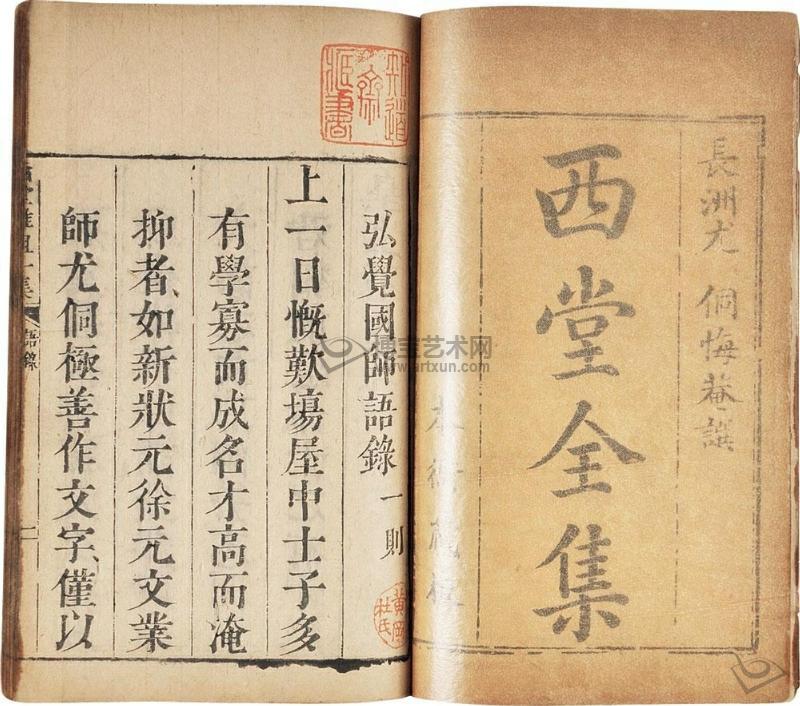 長洲尤 侗悔菴譔
西堂全集
弘覺國師語錄一則
上一日慨歎塲屋中士子多
有學寡而成名才高而淹
抑者、如新狀元徐元文業
師尤侗極善作文字、僅以
語錄
黃岡
杜氏
博宝艺术网
www.artxun.com